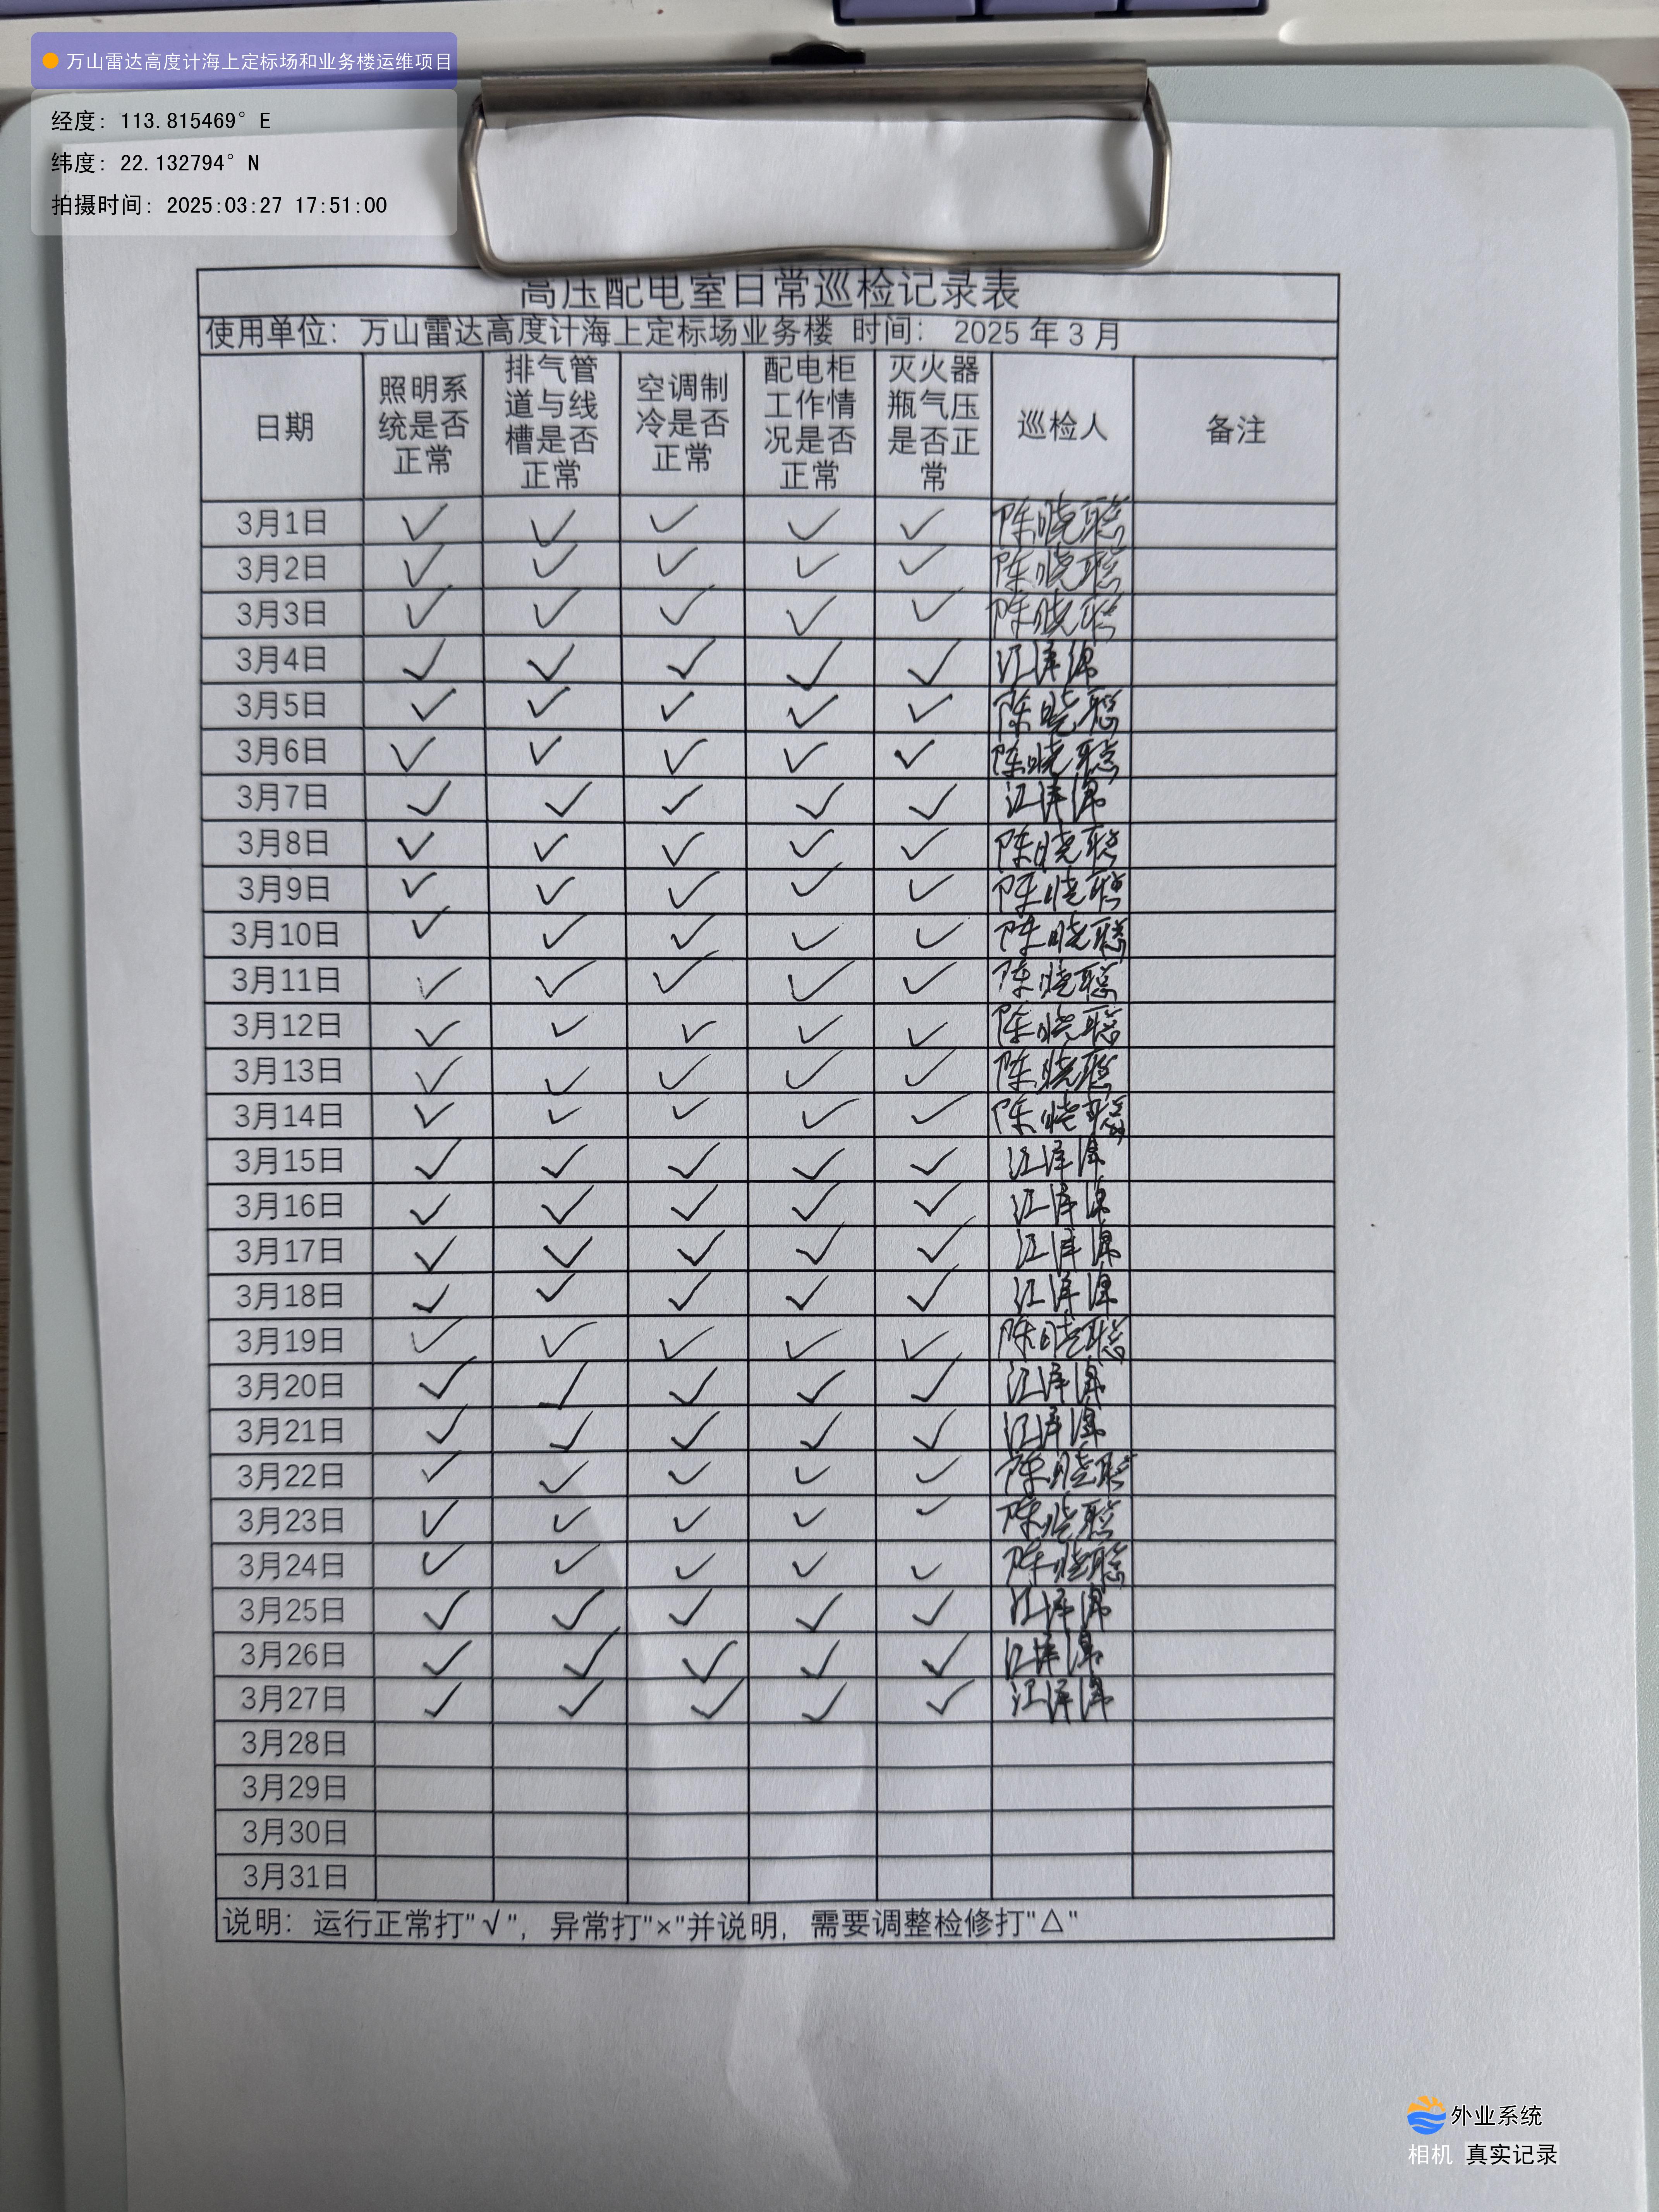 万山雷达高度计海上定标场和业务楼运维项目
经度: 113.815469° E
纬度: 22.132794° N
拍摄时间: 2025:03:27 17:51:00
高压配电室日常巡检记录表
使用单位: 万山雷达高度计海上定标场业务楼 时间: 2025 年 3 月
日期 照明系统是否正常 排气管道与线槽是否正常 空调制冷是否正常 配电柜工作情况是否正常 灭火器瓶气压是否正常 巡检人 备注
3月1日 ✓ ✓ ✓ ✓ ✓ 陈晓聪
3月2日 ✓ ✓ ✓ ✓ ✓ 陈晓聪
3月3日 ✓ ✓ ✓ ✓ ✓ 陈晓聪
3月4日 ✓ ✓ ✓ ✓ ✓ 江泽
3月5日 ✓ ✓ ✓ ✓ ✓ 陈晓聪
3月6日 ✓ ✓ ✓ ✓ ✓ 陈晓聪
3月7日 ✓ ✓ ✓ ✓ ✓ 江泽
3月8日 ✓ ✓ ✓ ✓ ✓ 陈晓聪
3月9日 ✓ ✓ ✓ ✓ ✓ 陈晓聪
3月10日 ✓ ✓ ✓ ✓ ✓ 陈晓聪
3月11日 ✓ ✓ ✓ ✓ ✓ 陈晓聪
3月12日 ✓ ✓ ✓ ✓ ✓ 陈晓聪
3月13日 ✓ ✓ ✓ ✓ ✓ 陈晓聪
3月14日 ✓ ✓ ✓ ✓ ✓ 陈晓聪
3月15日 ✓ ✓ ✓ ✓ ✓ 江泽
3月16日 ✓ ✓ ✓ ✓ ✓ 江泽
3月17日 ✓ ✓ ✓ ✓ ✓ 江泽
3月18日 ✓ ✓ ✓ ✓ ✓ 江泽
3月19日 ✓ ✓ ✓ ✓ ✓ 陈晓聪
3月20日 ✓ ✓ ✓ ✓ ✓ 江泽
3月21日 ✓ ✓ ✓ ✓ ✓ 江泽
3月22日 ✓ ✓ ✓ ✓ ✓ 陈晓聪
3月23日 ✓ ✓ ✓ ✓ ✓ 陈晓聪
3月24日 ✓ ✓ ✓ ✓ ✓ 陈晓聪
3月25日 ✓ ✓ ✓ ✓ ✓ 江泽
3月26日 ✓ ✓ ✓ ✓ ✓ 江泽
3月27日 ✓ ✓ ✓ ✓ ✓ 江泽
3月28日
3月29日
3月30日
3月31日
说明: 运行正常打"√", 异常打"×"并说明, 需要调整检修打"△"
外业系统
相机 真实记录